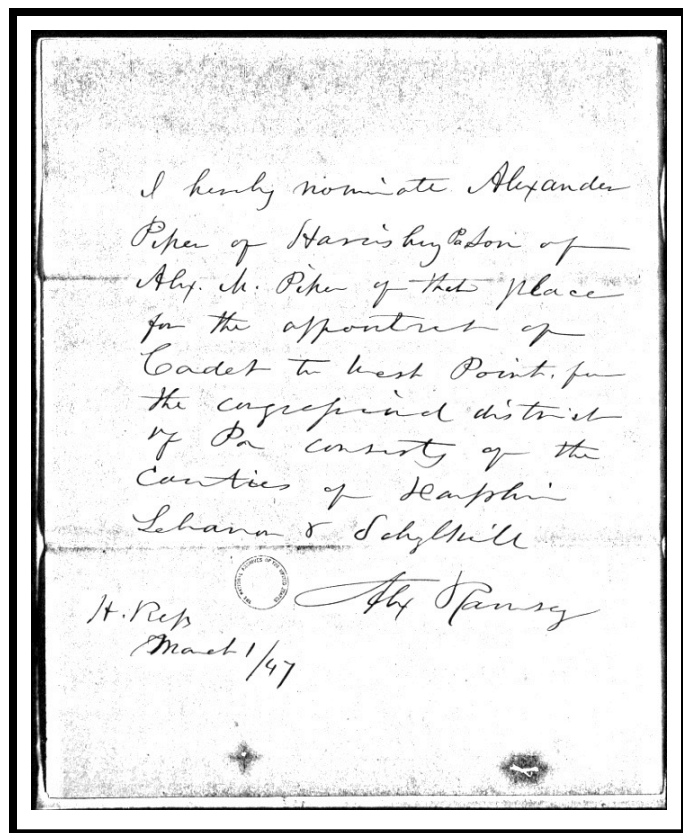 I hereby nominate Alexander
Piper of Harrisburg Pa Son of
Alx. M. Piper of that place
for the appointmt of
Cadet to West Point, from
the congressional district
of Pa consists of the
Counties of Dauphin
Lebanon & Schylkill
Alx Ramsey
THE NATIONAL ARCHIVES OF THE UNITED STATES
H. Reps
March 1/47